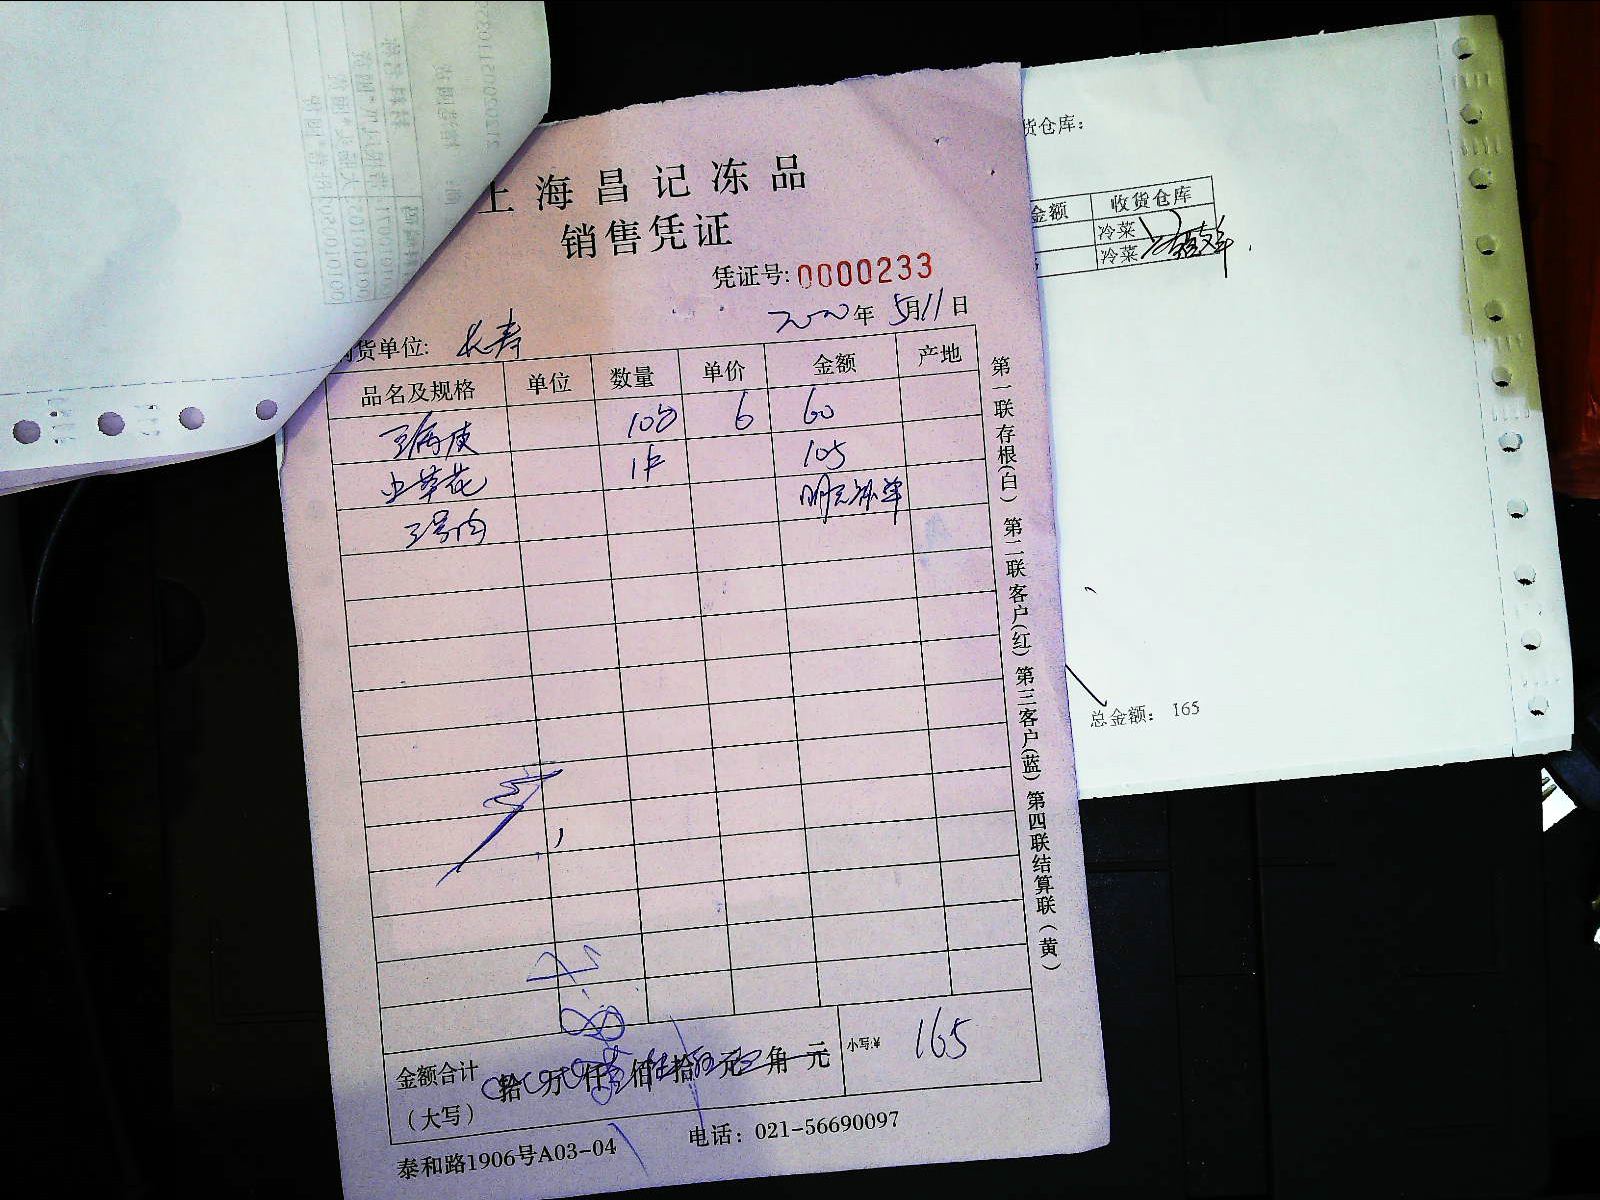 上海昌记冻品
销售凭证
凭证号: 0000233
2020年5月11日
购货单位: 长寿
品名及规格 单位 数量 单价 金额 产地
10包 6 60
虫草花 1斤 105
3号肉
金额合计
(大写)
拾 万 仟 佰 拾 元 角 元
小写:¥ 165
泰和路1906号A03-04 电话: 021-56690097
第一联存根(白) 第二联客户(红) 第三客户(蓝) 第四联结算联(黄)
货仓库:
金额 收货仓库
冷菜
冷菜
总金额: 165